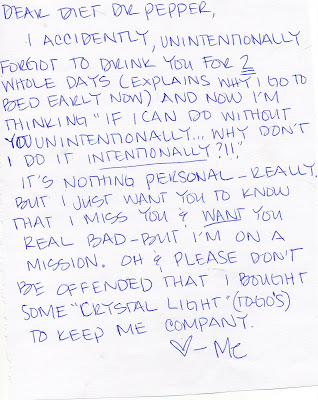 DEAR DIET DR PEPPER,
I ACCIDENTLY, UNINTENTIONALLY
FORGOT TO DRINK YOU FOR 2
WHOLE DAYS (EXPLAINS WHY I GO TO
BED EARLY NOW) AND NOW I'M
THINKING "IF I CAN DO WITHOUT
YOU UNINTENTIONALLY... WHY DON'T
I DO IT INTENTIONALLY?!!"
IT'S NOTHING PERSONAL - REALLY.
BUT I JUST WANT YOU TO KNOW
THAT I MISS YOU & WANT YOU
REAL BAD - BUT I'M ON A
MISSION. OH & PLEASE DON'T
BE OFFENDED THAT I BOUGHT
SOME "CRYSTAL LIGHT" (TOGO'S)
TO KEEP ME COMPANY.
♡ - ME